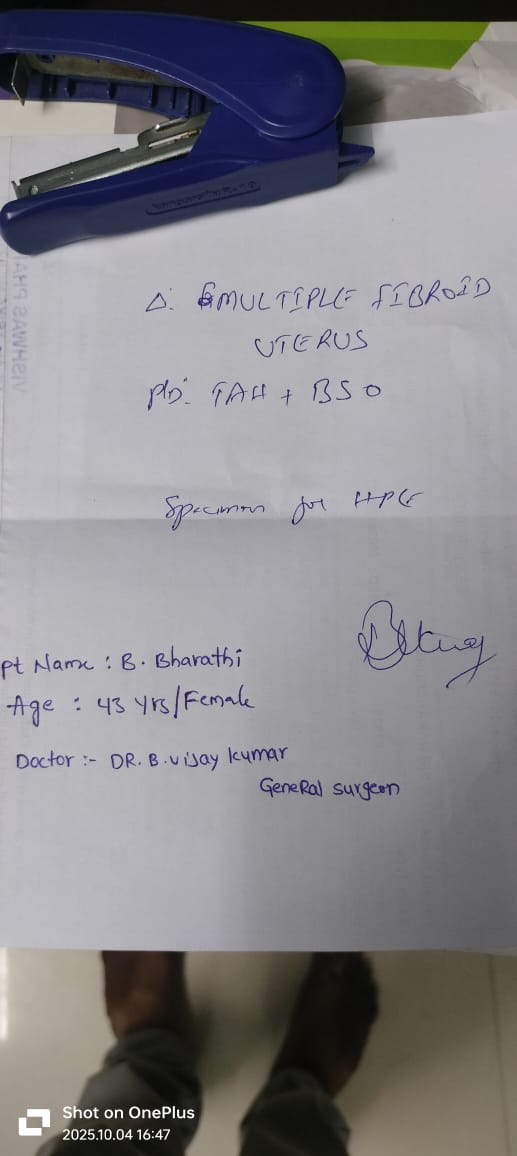 Δ: MULTIPLE FIBROID
UTERUS
TAH + BSO
Specimen for HPE
Pt Name : B. Bharathi
Age : 43 Yrs/Female
Doctor :- DR. B. Vijay kumar
GeneRal surgeon
Shot on OnePlus
2025.10.04 16:47